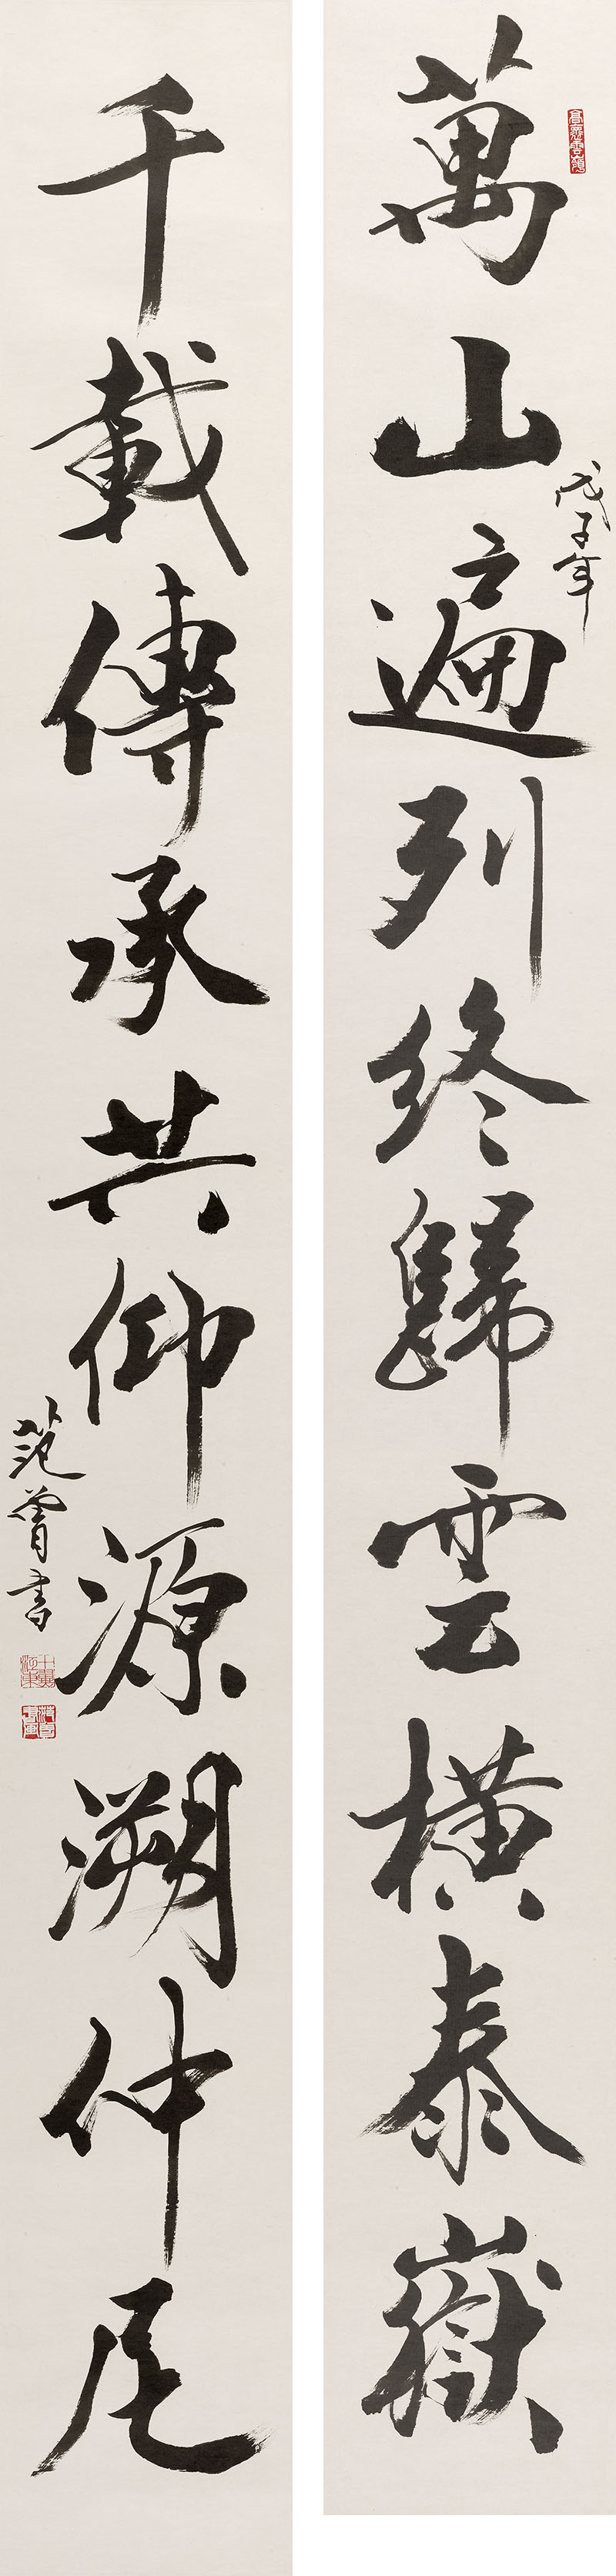 萬山遍列終歸雲橫泰嶽
戊子年
千載傳承共仰源溯仲尼
范曾書
十翼江東